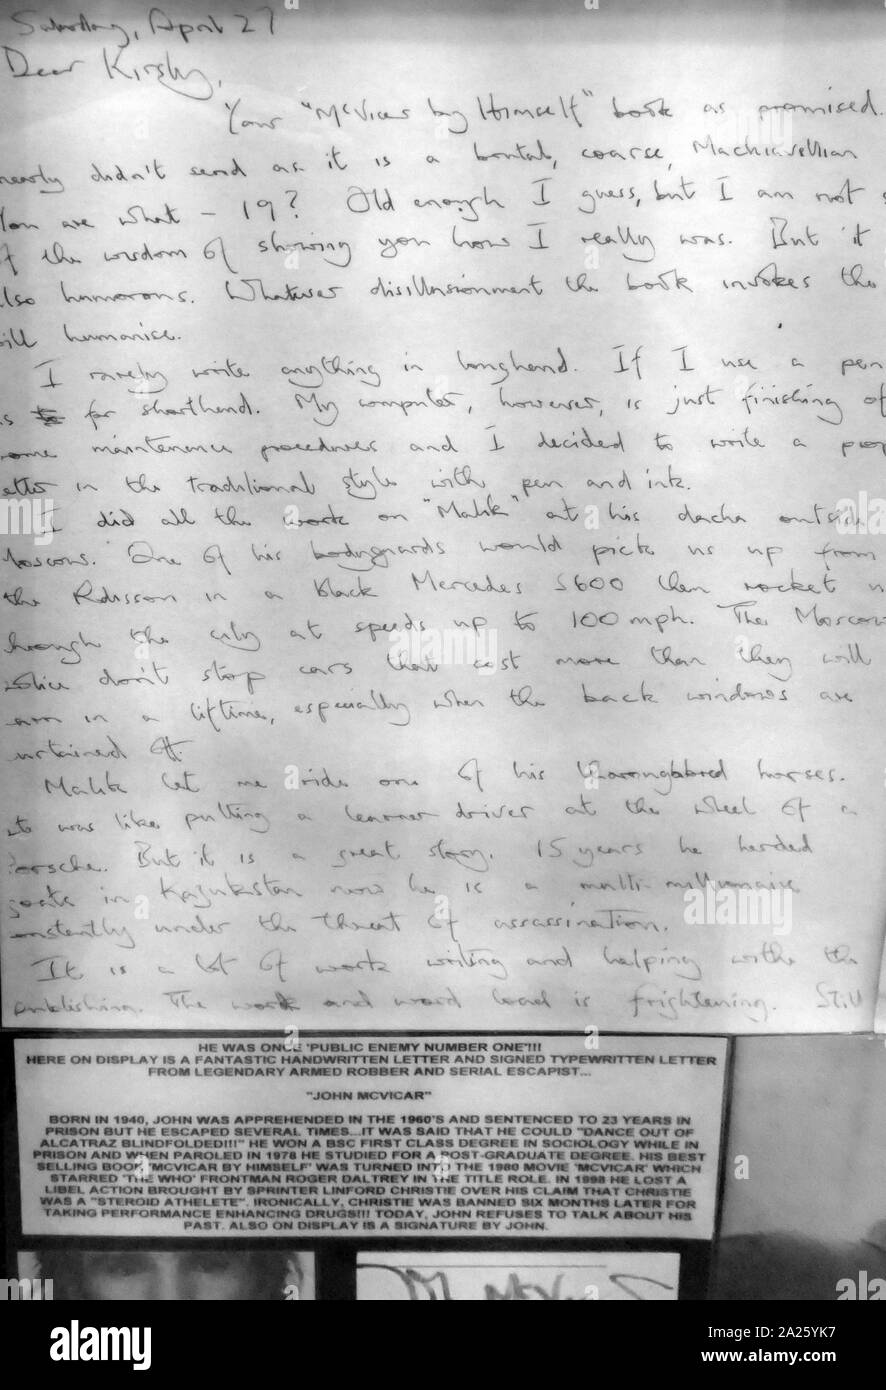 Saturday, April 27
Dear Kirsty,
Your "McVicar by Himself" book as promised.
nearly didn't send as it is a brutal, coarse, Machiavellian
You are what – 19? Old enough I guess, but I am not s
f the wisdom of showing you how I really was. But it
lso humorous. Whatever disillusionment the book invokes the
ill humanise.
I rarely write anything in longhand. If I use a pen
is for shorthand. My computer, however, is just finishing of
ome maintenance procedures and I decided to write a prop
etter in the traditional style with pen and ink.
I did all the work on "Malik" at his dacha outside
Moscow. One of his bodyguards would pick us up from
the Radisson in a black Mercedes S600 then rocket u
hrough the city at speeds up to 100mph. The Moscow
olice don't stop cars that cost more than they will
earn in a lifetime, especially when the back windows are
urtained off.
Malik let me ride one of his thoroughbred horses.
It was like putting a learner driver at the wheel of a
Porsche. But it is a great story. 15 years he herded
goats in Kazukstan now he is a multi-millionaire
onstantly under the threat of assassination.
It is a lot of work writing and helping withe the
publishing. The work and word load is frightening. Still
HE WAS ONCE 'PUBLIC ENEMY NUMBER ONE'!!!
HERE ON DISPLAY IS A FANTASTIC HANDWRITTEN LETTER AND SIGNED TYPEWRITTEN LETTER
FROM LEGENDARY ARMED ROBBER AND SERIAL ESCAPIST...
"JOHN MCVICAR"
BORN IN 1940, JOHN WAS APPREHENDED IN THE 1960'S AND SENTENCED TO 23 YEARS IN
PRISON BUT HE ESCAPED SEVERAL TIMES...IT WAS SAID THAT HE COULD "DANCE OUT OF
ALCATRAZ BLINDFOLDED!!!" HE WON A BSC FIRST CLASS DEGREE IN SOCIOLOGY WHILE IN
PRISON AND WHEN PAROLED IN 1978 HE STUDIED FOR A POST-GRADUATE DEGREE. HIS BEST
SELLING BOOK 'MCVICAR BY HIMSELF' WAS TURNED INTO THE 1980 MOVIE 'MCVICAR' WHICH
STARRED 'THE WHO' FRONTMAN ROGER DALTREY IN THE TITLE ROLE. IN 1998 HE LOST A
LIBEL ACTION BROUGHT BY SPRINTER LINFORD CHRISTIE OVER HIS CLAIM THAT CHRISTIE
WAS A "STEROID ATHELETE". IRONICALLY, CHRISTIE WAS BANNED SIX MONTHS LATER FOR
TAKING PERFORMANCE ENHANCING DRUGS!!! TODAY, JOHN REFUSES TO TALK ABOUT HIS
PAST. ALSO ON DISPLAY IS A SIGNATURE BY JOHN.
alamy
Image ID: 2A25YK7
www.alamy.com